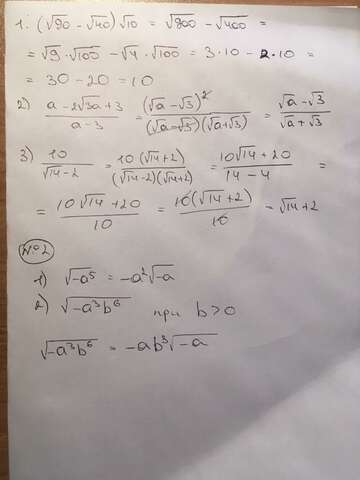 1. (√90 - √40)√10 = √900 - √400 =
= √9 · √100 - √4 · √100 = 3·10 - 2·10 =
= 30 - 20 = 10
2) (a - 2√3a + 3)/(a - 3) = (√a - √3)²/((√a - √3)(√a + √3)) = (√a - √3)/(√a + √3)
3) 10/(√14 - 2) = 10(√14 + 2)/((√14 - 2)(√14 + 2)) = (10√14 + 20)/(14 - 4) =
= (10√14 + 20)/10 = 10(√14 + 2)/10 = √14 + 2
№2
1) √-a⁵ = -a²√-a
2) √-a³b⁶ при b > 0
√-a³b⁶ = -ab³√-a